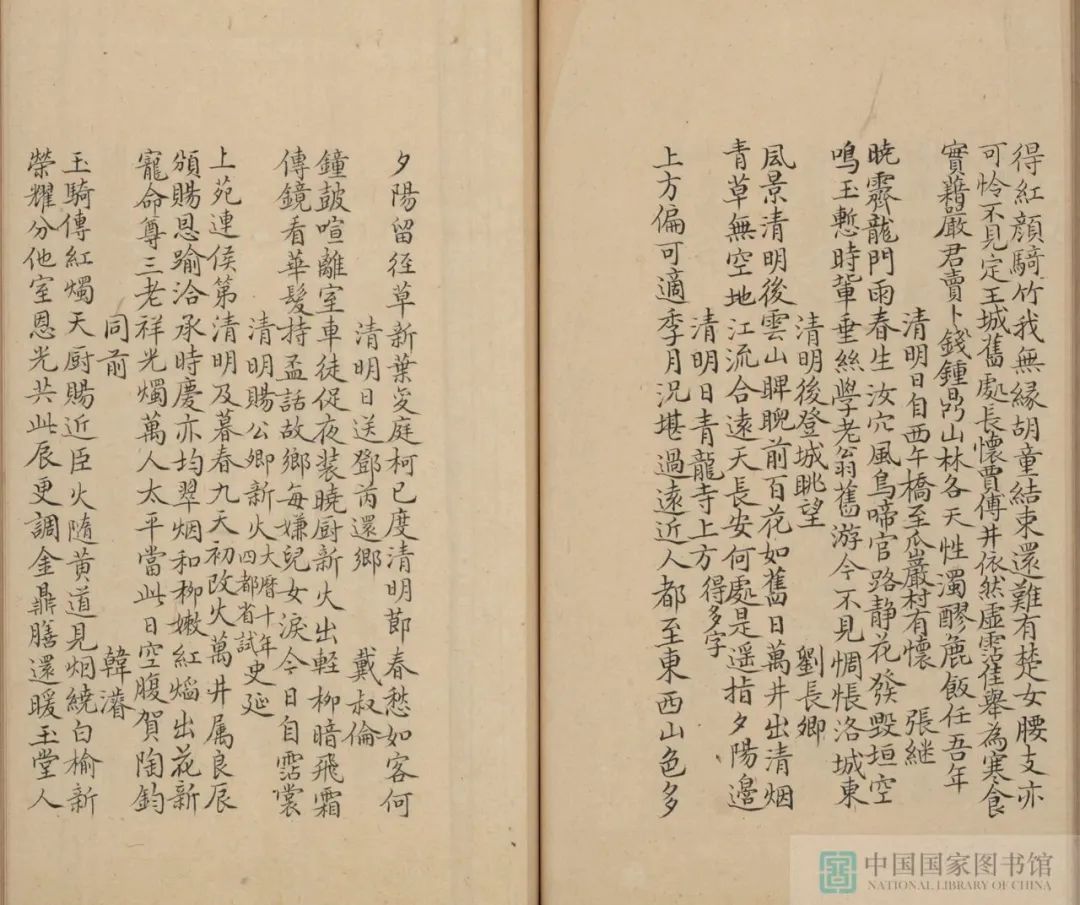 得紅顔騎竹我無緣胡童結束還難有楚女腰支亦
可怜不見定王城舊処長懷賈傅井依然虛霑佳舉為寒食
實藉嚴君賣卜錢鍾鼎山林各天性濁醪麁飯任吾年
清明日自西午橋至瓜巖村有懷 張継
晓霽龍門雨春生汝穴風鳥啼官路静花發毀垣空
鳴玉慙時輩垂絲學老翁舊游今不見惆悵洛城東
清明後登城眺望 劉長卿
風景清明後雲山睥睨前百花如舊日萬井出清烟
青草無空地江流合遠天長安何處是遥指夕陽邊
清明日青龍寺上方 得多字
上方偏可適季月況堪過遠近人都至東西山色多
夕陽留径草新葉变庭柯已度清明節春愁如客何
清明日送鄧芮還鄉 戴叔倫
鐘鼓喧離室車徒促夜装晓厨新火出軽柳暗飛霜
傳鏡看華髮持盃話故鄉每嫌兒女淚今日自霑裳
清明賜公卿新火 大曆十年四都省試 史延
上苑連侯第清明及暮春九天初改火萬井属良辰
頒賜恩踰洽承時慶亦均翠烟和柳嫩紅焰出花新
寵命尊三老祥光燭萬人太平當此日空腹賀陶鈞
同前 韓濬
玉騎傳紅燭天厨賜近臣火隨黄道見烟繞白榆新
榮耀分他室恩光共此辰更調金鼎膳還暖玉堂人
中国国家图书馆
NATIONAL LIBRARY OF CHINA